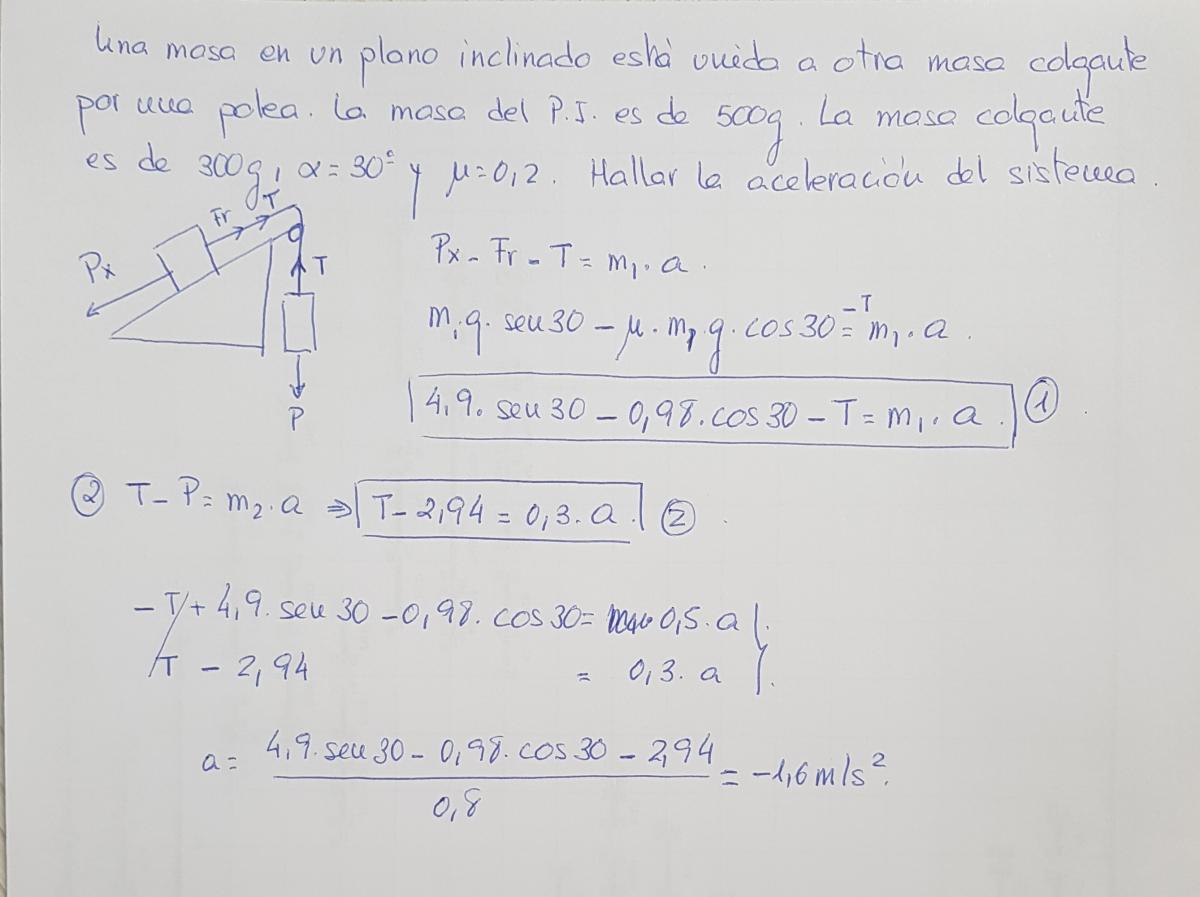 Una masa en un plano inclinado está unida a otra masa colgante
por una polea. La masa del P.I. es de 500g. La masa colgante
es de 300g, α=30º y μ=0,2. Hallar la aceleración del sistema.
Fr T
Px
T
P
Px - Fr - T = m₁·a.
m₁g·sen30 - μ·m₁·g·cos30 -T = m₁·a.
4,9·sen30 - 0,98·cos30 - T = m₁·a. ①
② T - P = m₂·a ⇒ T - 2,94 = 0,3·a. ②
-T + 4,9·sen30 - 0,98·cos30 = 0,5·a
T - 2,94 = 0,3·a
a = (4,9·sen30 - 0,98·cos30 - 2,94)/0,8 = -1,6 m/s².